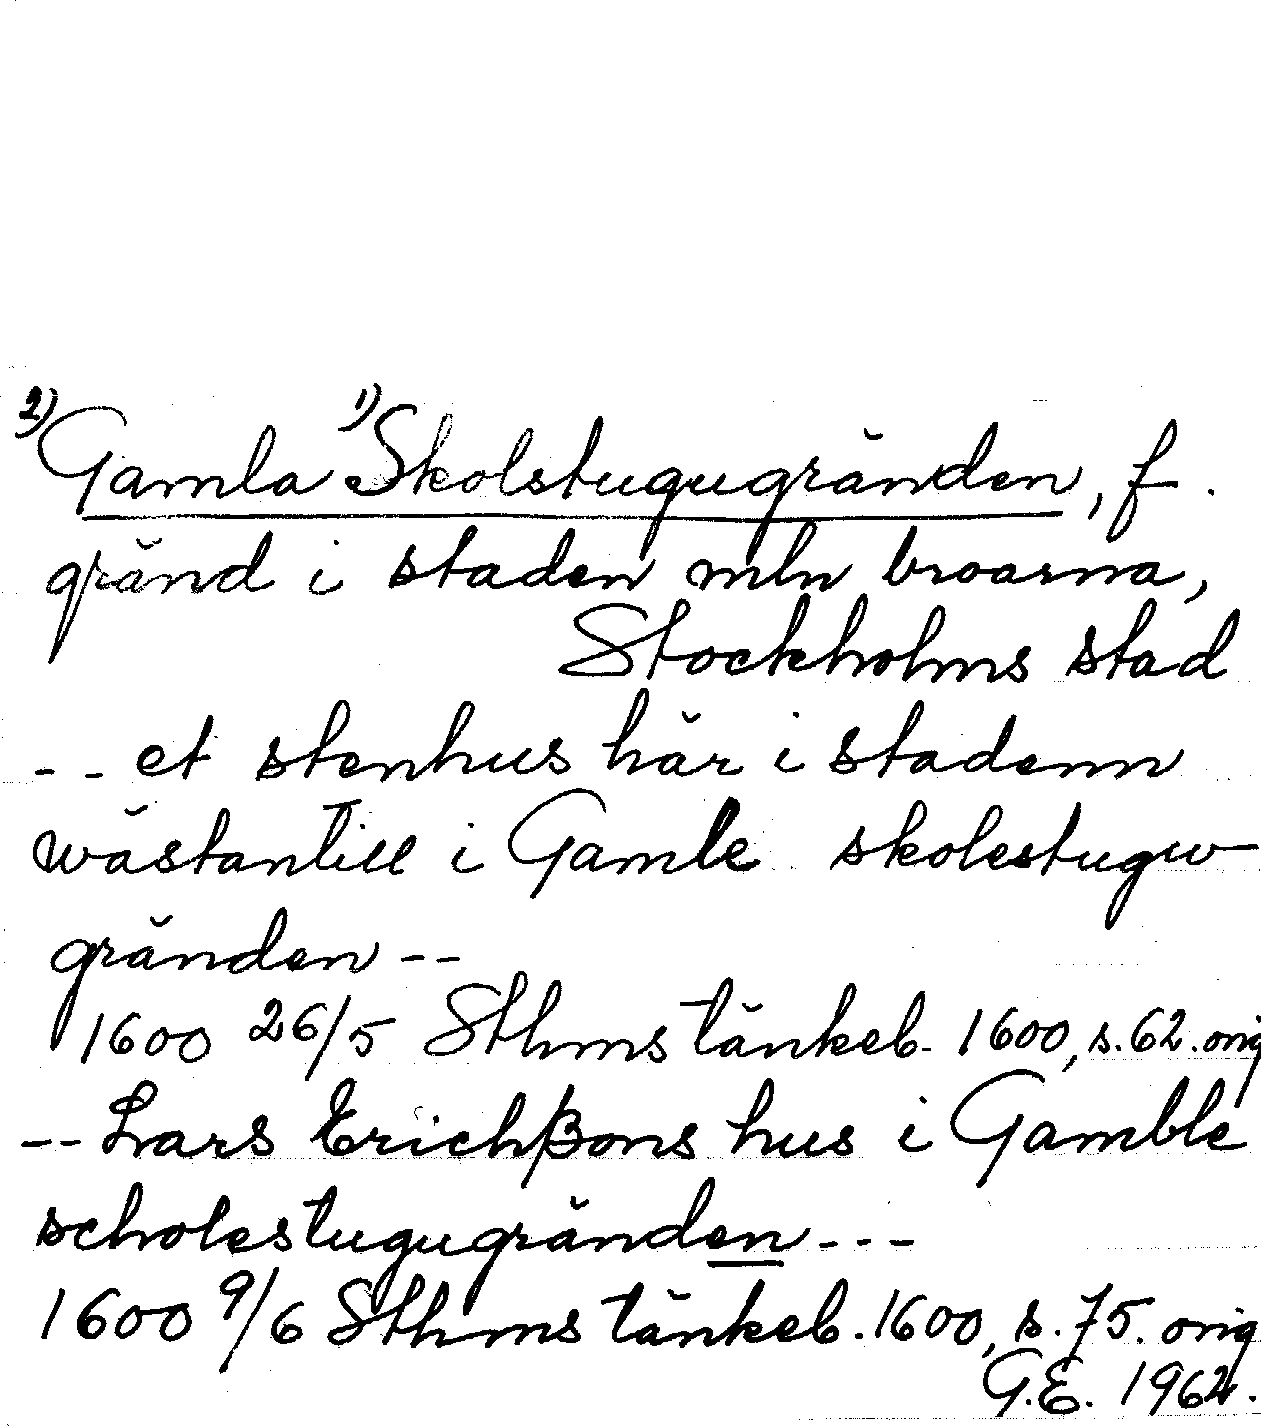 2) Gamla 1) Skolstugugränden, f.
gränd i staden mln broarna,
Stockholms stad
-- et stenhus här i stadenn
wästantill i Gamle skolestugw
gränden --
1600 26/5 Sthms tänkeb. 1600, s. 62. orig
-- Lars Erichßons hus i Gamble
scholestugugränden ---
1600 9/6 Sthms tänkeb. 1600, s. 75. orig
G.E. 1962.